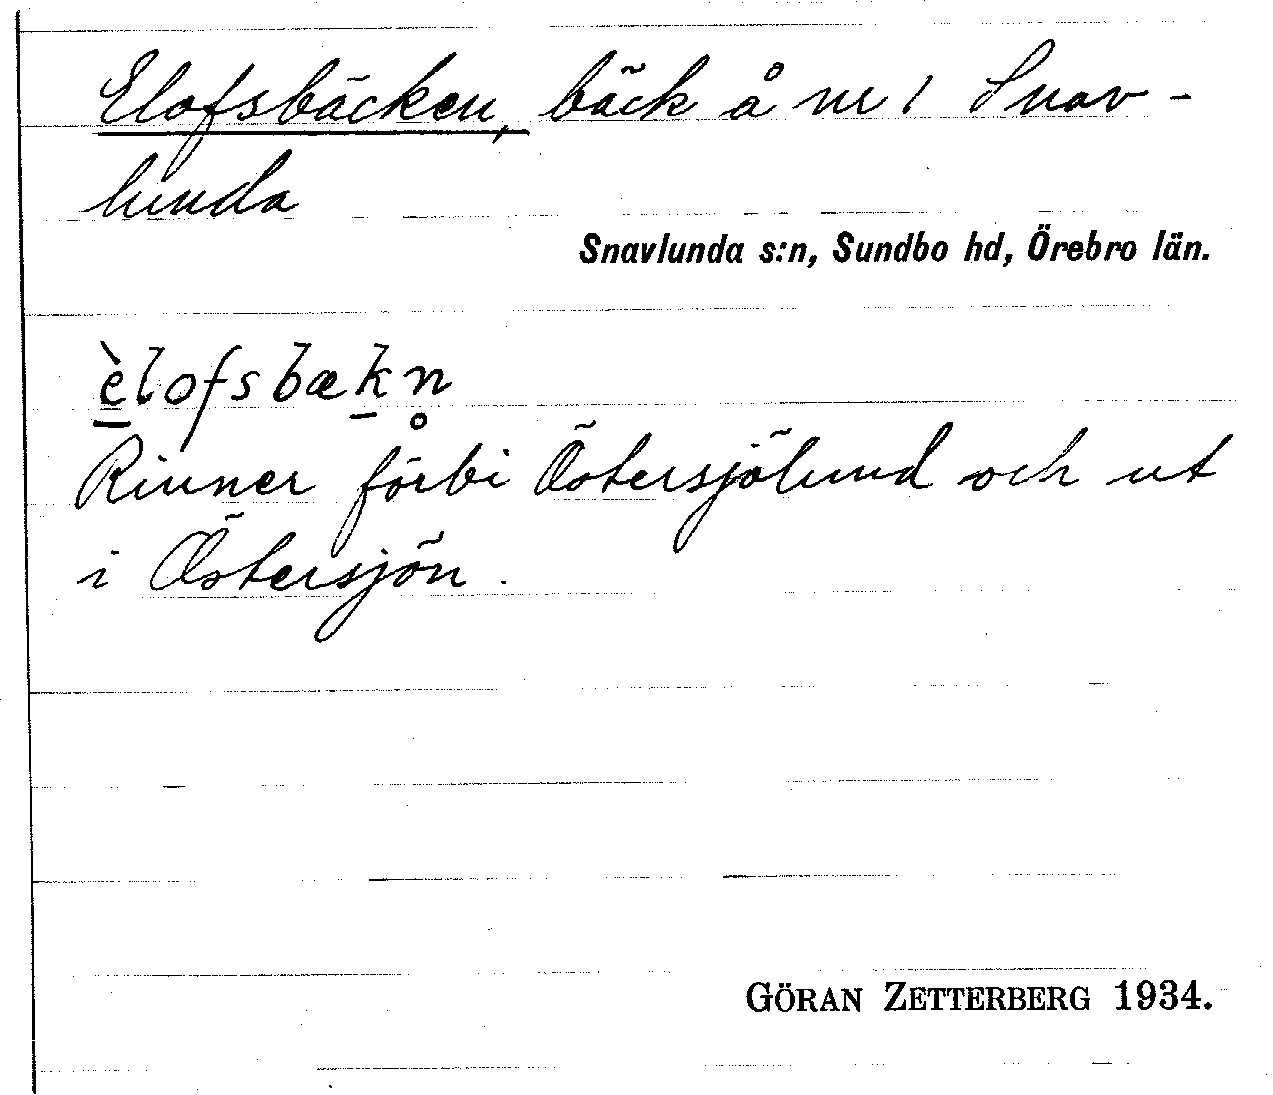 Elofsbäcken, bäck å nr 1 Snav-
lunda
Snavlunda s:n, Sundbo hd, Örebro län.
è̱lofsbæḵn̥
Rinner förbi Östersjölund och ut
i Östersjön.
GÖRAN ZETTERBERG 1934.